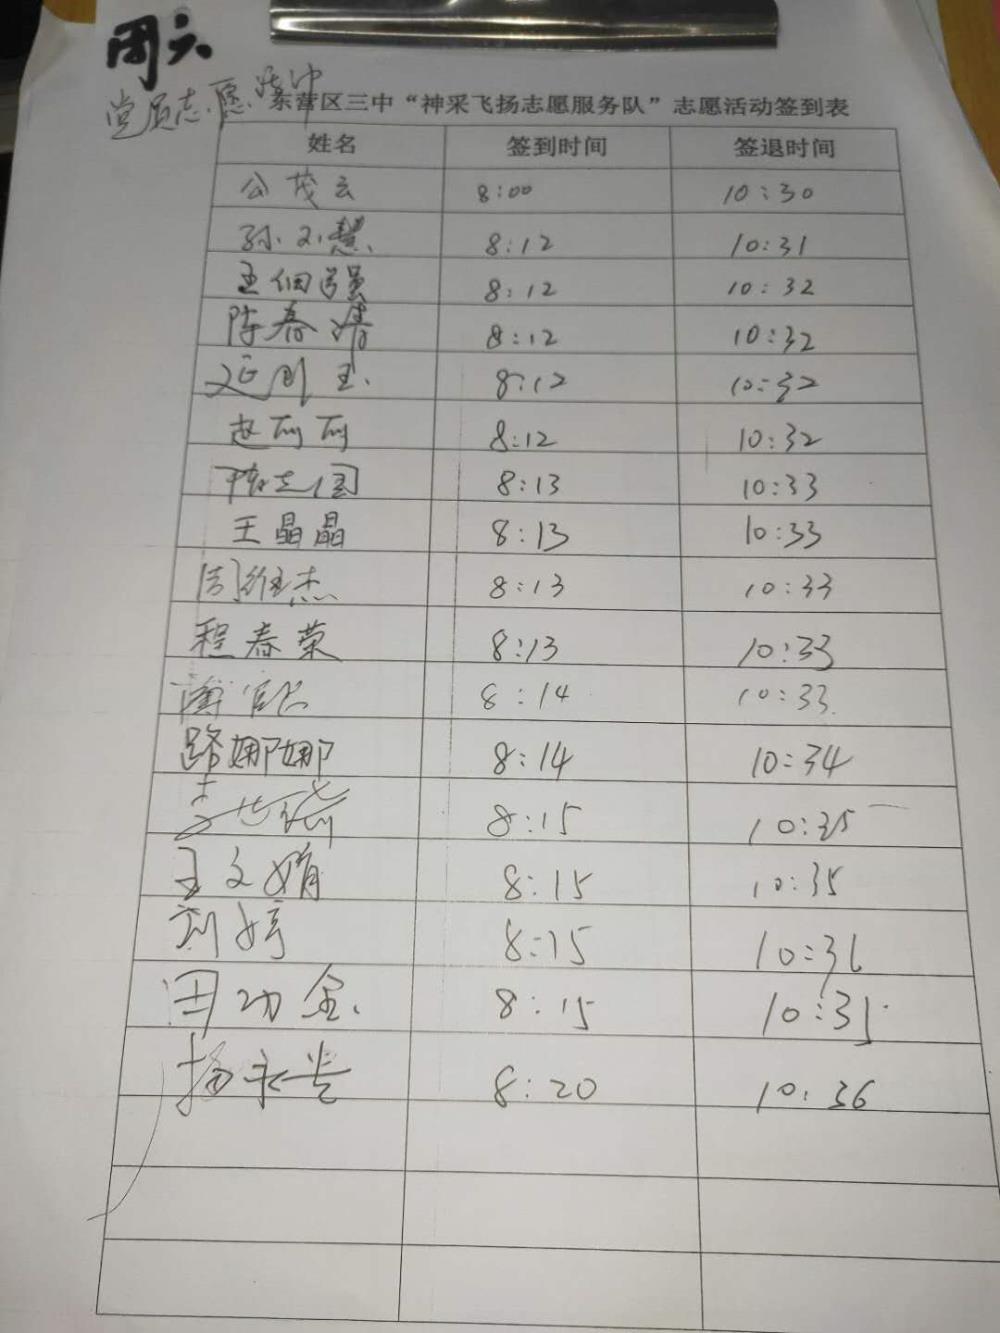 周六
党员志愿活动
东营区三中“神采飞扬志愿服务队”志愿活动签到表
姓名 签到时间 签退时间
公茂云 8:00 10:30
孙文慧 8:12 10:31
王佃强 8:12 10:32
陈春清 8:12 10:32
延刚玉 8:12 10:32
赵丽丽 8:12 10:32
陈志国 8:13 10:33
王晶晶 8:13 10:33
周维杰 8:13 10:33
程春荣 8:13 10:33
8:14 10:33
路娜娜 8:14 10:34
李世瑞 8:15 10:35
王文娟 8:15 10:35
刘婷 8:15 10:36
田功金 8:15 10:35
杨永贵 8:20 10:36